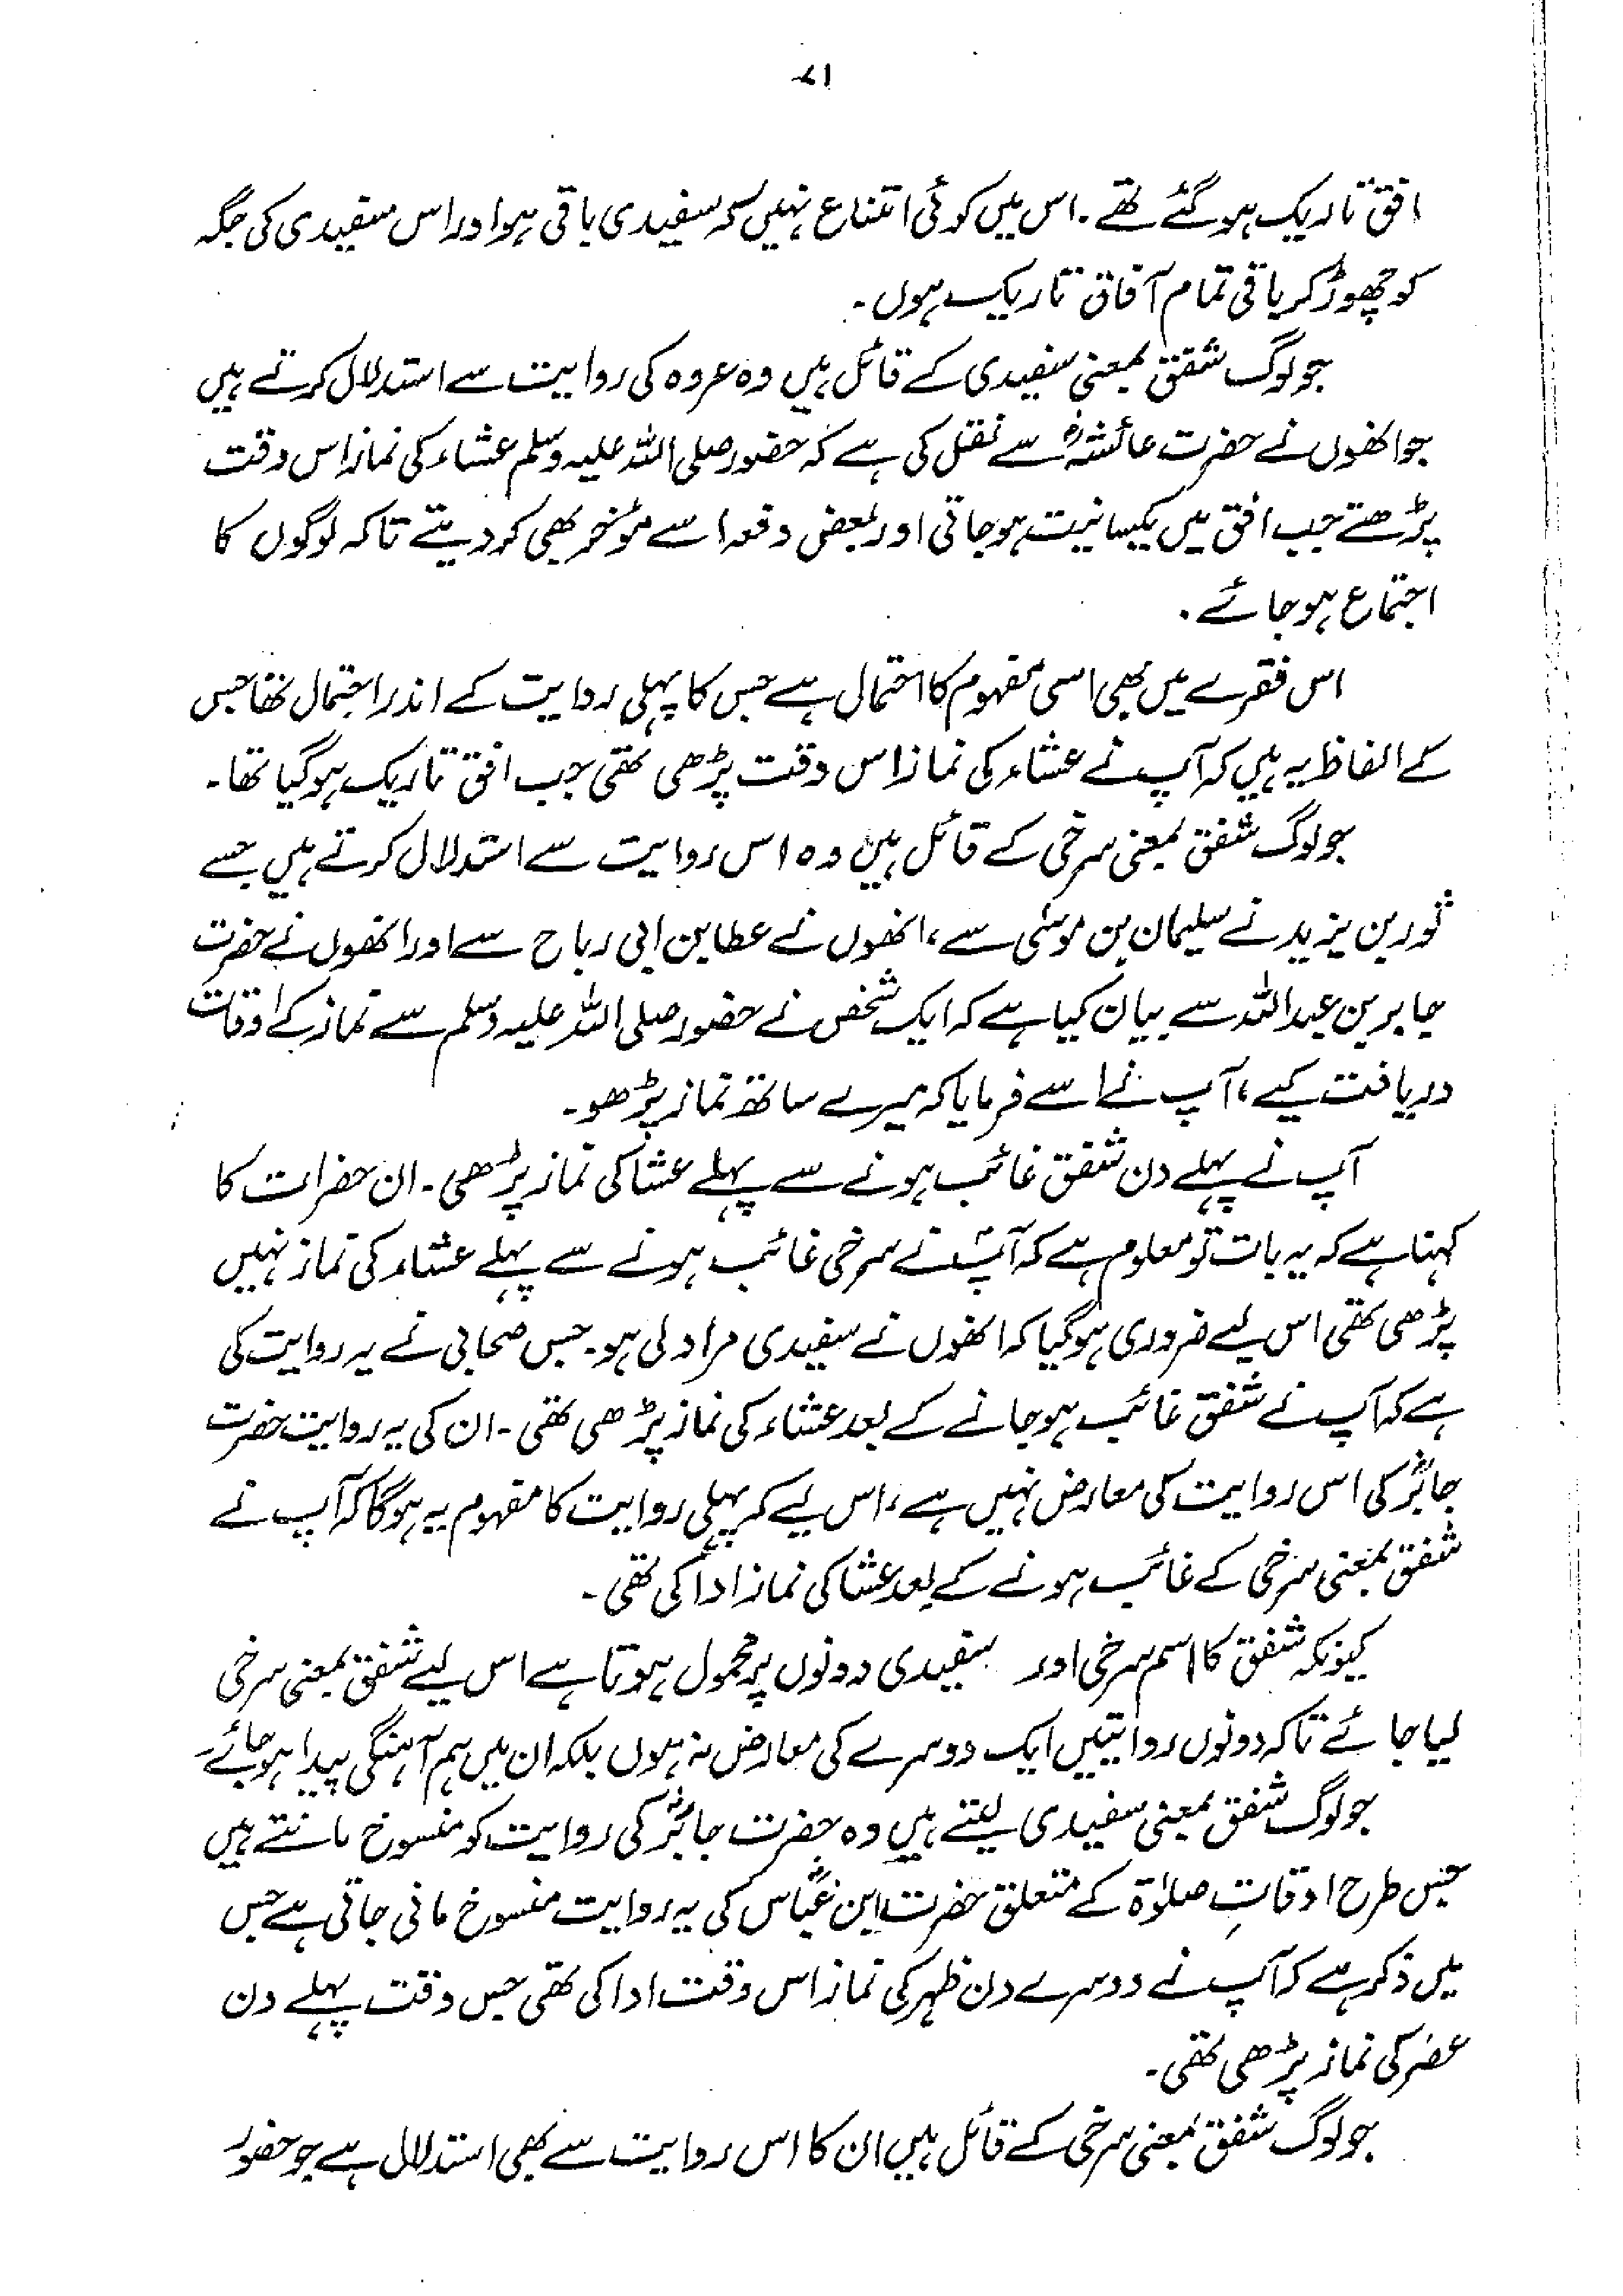 ۷۱
افق تاریک ہو گئے تھے۔ اس میں کوئی امتناع نہیں کہ سفیدی باقی ہو اور اس سفیدی کی جگہ
کو چھوڑ کر باقی تمام آفاق تاریک ہوں۔
جو لوگ شفق بمعنی سفیدی کے قائل ہیں وہ عروہ کی روایت سے استدلال کرتے ہیں
جو انھوں نے حضرت عائشہؓ سے نقل کی ہے کہ حضور صلی اللہ علیہ وسلم عشاء کی نماز اس وقت
پڑھتے جب افق میں یکسانیت ہو جاتی اور بعض دفعہ اسے مؤخر بھی کر دیتے تاکہ لوگوں کا
اجتماع ہو جائے۔
اس فقرے میں بھی اسی مفہوم کا احتمال ہے جس کا پہلی روایت کے اندر احتمال تھا جس
کے الفاظ یہ ہیں کہ آپ نے عشاء کی نماز اس وقت پڑھی تھی جب افق تاریک ہو گیا تھا۔
جو لوگ شفق بمعنی سرخی کے قائل ہیں وہ اس روایت سے استدلال کرتے ہیں جسے
ثور بن یزید نے سلیمان بن موسٰی سے، انھوں نے عطا بن ابی رباح سے اور انھوں نے حضرت
جابر بن عبداللہ سے بیان کیا ہے کہ ایک شخص نے حضور صلی اللہ علیہ وسلم سے نماز کے اوقات
دریافت کیے، آپ نے اسے فرمایا کہ میرے ساتھ نماز پڑھو۔
آپ نے پہلے دن شفق غائب ہونے سے پہلے عشا کی نماز پڑھی۔ ان حضرات کا
کہنا ہے کہ یہ بات تو معلوم ہے کہ آپؐ نے سرخی غائب ہونے سے پہلے عشاء کی نماز نہیں
پڑھی تھی اس لیے ضروری ہو گیا کہ انھوں نے سفیدی مراد لی ہو۔ جس صحابی نے یہ روایت کی
ہے کہ آپ نے شفق غائب ہو جانے کے بعد عشاء کی نماز پڑھی تھی۔ ان کی یہ روایت حضرت
جابرؓ کی اس روایت کی معارض نہیں ہے، اس لیے کہ پہلی روایت کا مفہوم یہ ہوگا کہ آپ نے
شفق بمعنی سرخی کے غائب ہونے کے بعد عشا کی نماز ادا کی تھی۔
کیونکہ شفق کا اسم سرخی اور سفیدی دونوں پر محمول ہوتا ہے اس لیے شفق بمعنی سرخی
لیا جائے تاکہ دونوں روایتیں ایک دوسرے کی معارض نہ ہوں بلکہ ان میں ہم آہنگی پیدا ہو جائے۔
جو لوگ شفق بمعنی سفیدی لیتے ہیں وہ حضرت جابرؓ کی روایت کو منسوخ مانتے ہیں
جس طرح اوقاتِ صلوٰۃ کے متعلق حضرت ابن عباسؓ کی یہ روایت منسوخ مانی جاتی ہے جس
میں ذکر ہے کہ آپ نے دوسرے دن ظہر کی نماز اس وقت ادا کی تھی جس وقت پہلے دن
عصر کی نماز پڑھی تھی۔
جو لوگ شفق بمعنی سرخی کے قائل ہیں ان کا اس روایت سے بھی استدلال ہے جو حضور